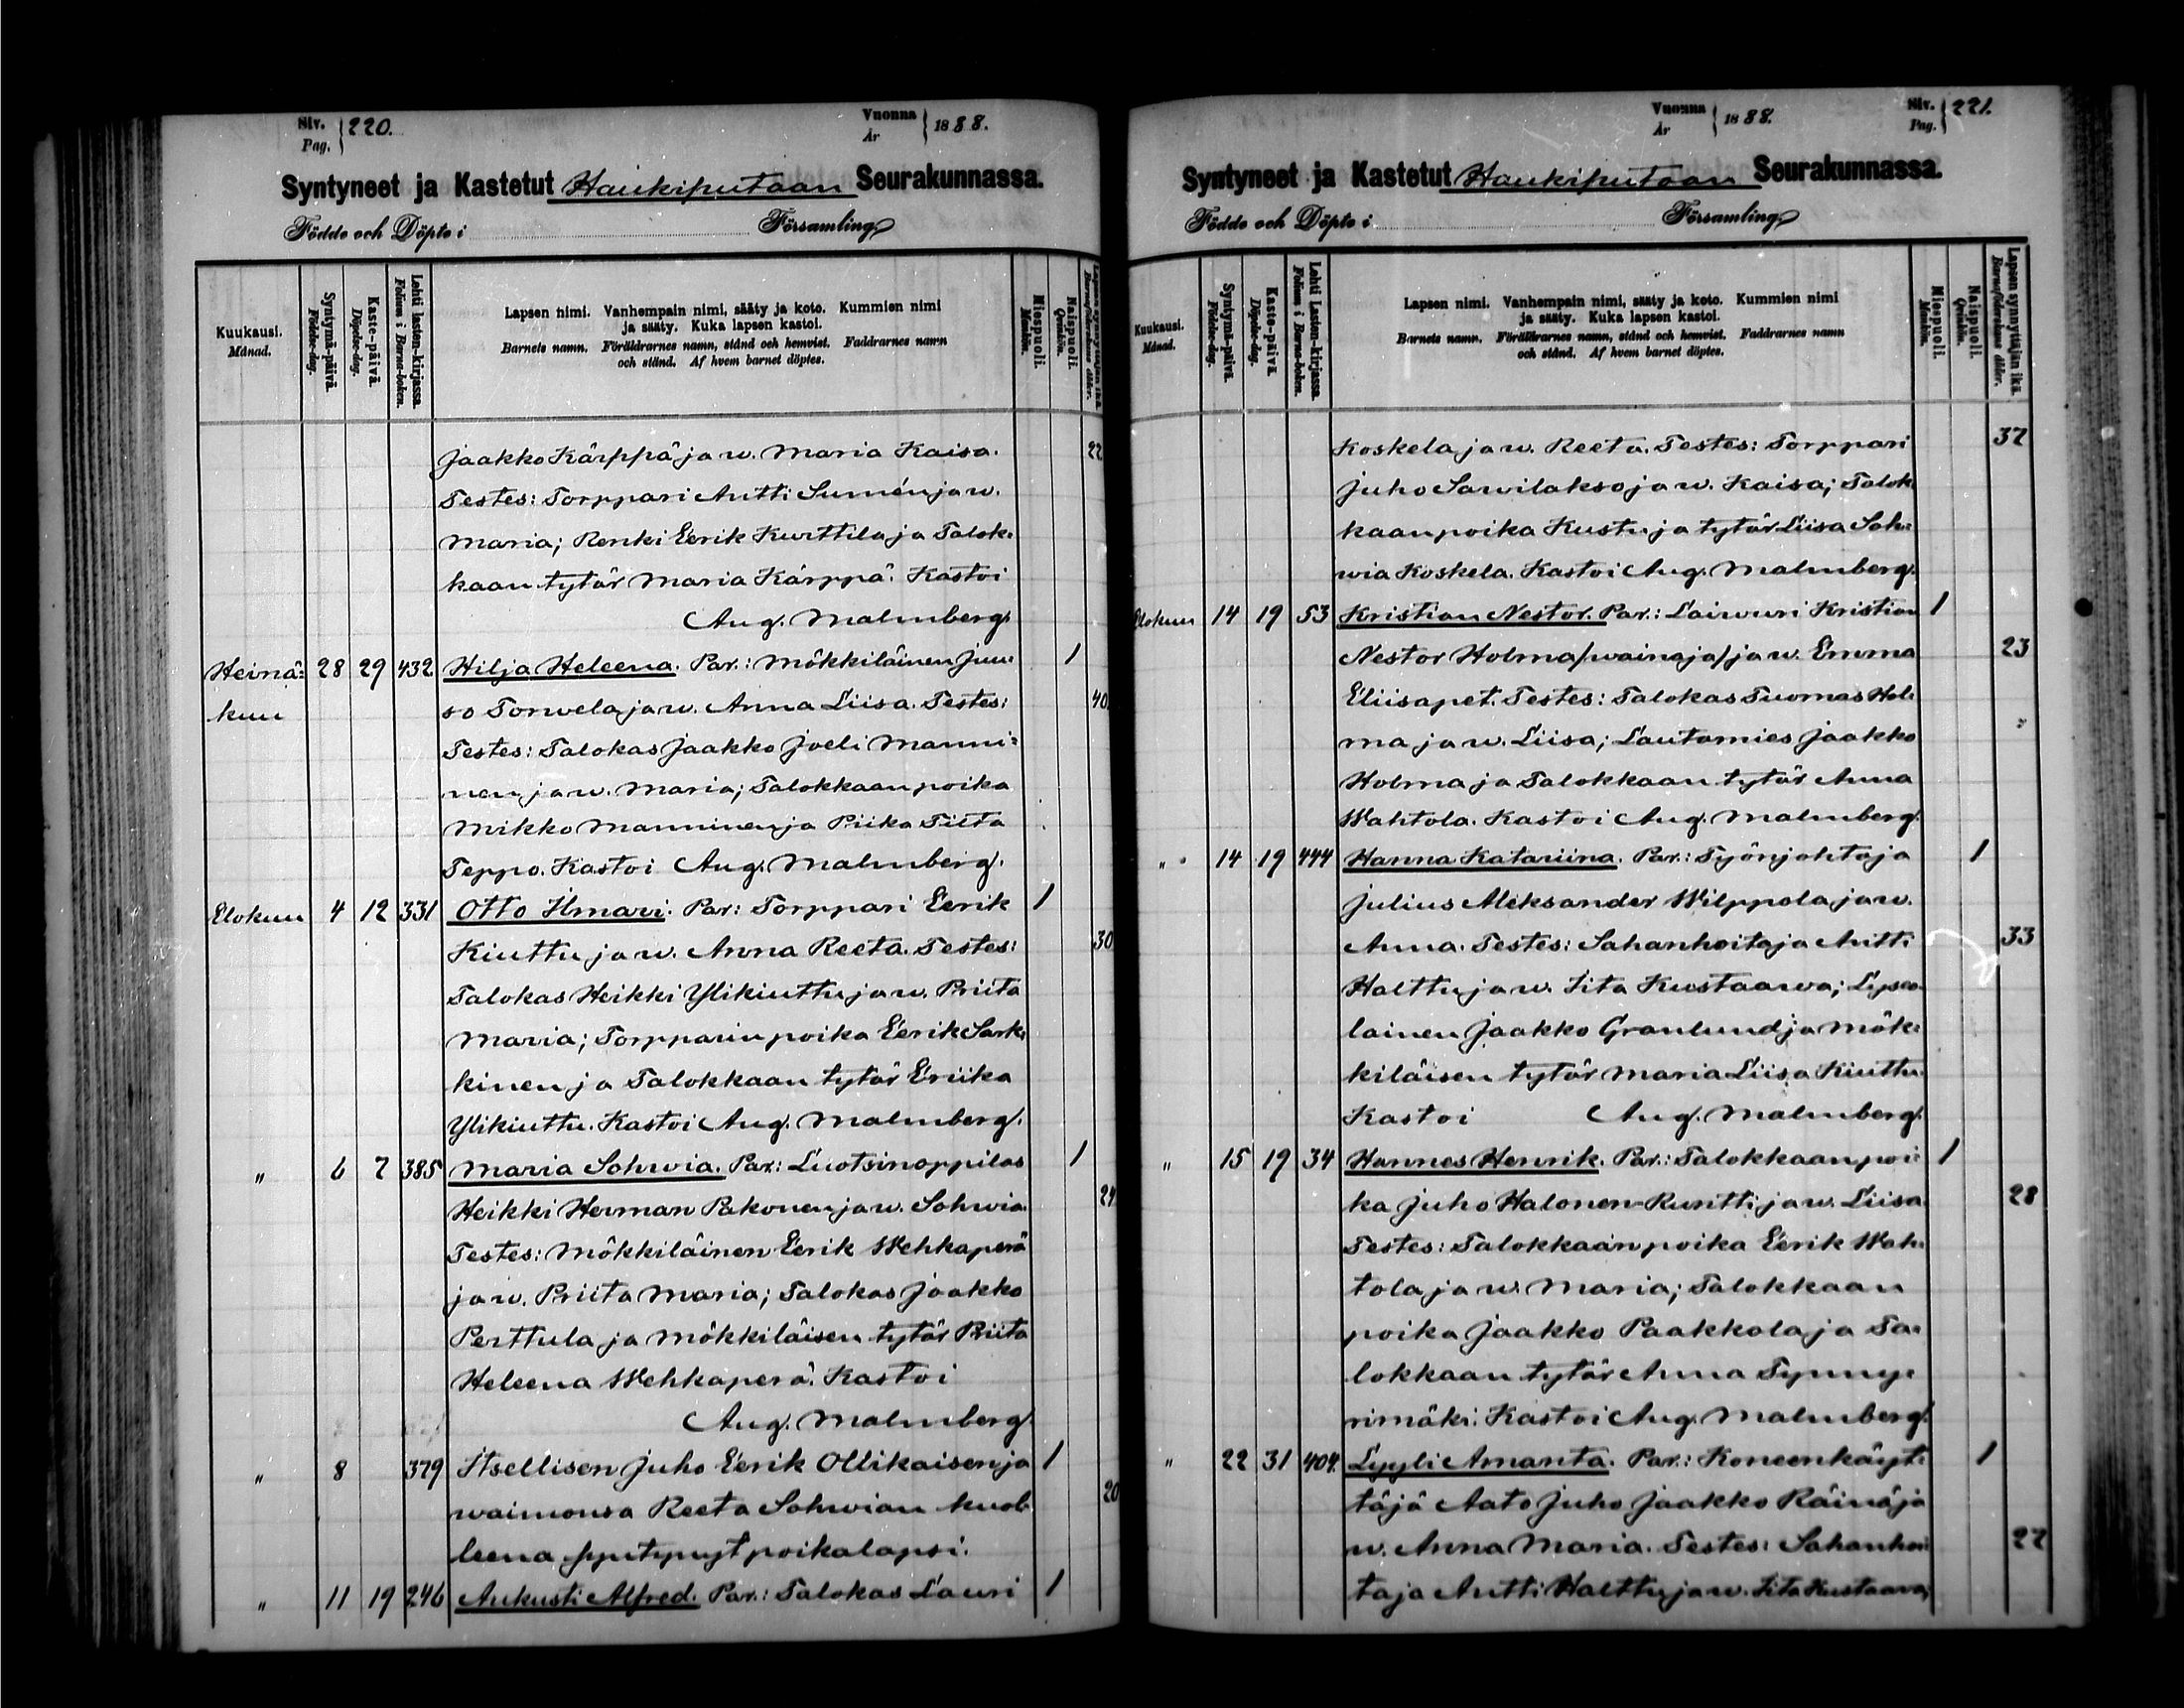 Siv. Pag. 220.
Vuonna År 1888.
Syntyneet ja Kastetut Haukiputaan Seurakunnassa.
Födde och Döpte i Församling
Kuukausi. Månad.
Syntymä-päivä. Födelse-dag.
Kaste-päivä. Döpelse-dag.
Lehti lasten-kirjassa. Folium i Barna-boken.
Lapsen nimi. Vanhempain nimi, sääty ja koto. Kummien nimi
ja sääty. Kuka lapsen kastoi.
Barnets namn. Föräldrarnes namn, stånd och hemvist. Faddrarnes namn
och stånd. Af hvem barnet döptes.
Miespuoli. Mankön.
Naispuoli. Qvinkön.
Lapsen synnyttäjän ikä. Barnaföderskans ålder.
Jaakko Kärppä ja w. Maria Kaisa. 22
Testes: Torppari Antti Sumén ja w.
Maria; Renki Eerik Kurttila ja Talok-
kaan tytär Maria Kärppä. Kastoi
Aug. Malmberg.
Heinä- 28 29 432 Hilja Heleena. Par.: Mökkiläinen Juu- 1
kuu so Torwela ja w. Anna Liisa. Testes: 40
Testes: Talokas Jaakko Joeli Manni-
nen ja w. Maria; Talokkaan poika
Mikko Manninen ja Piika Tiita
Teppo. Kastoi Aug. Malmberg.
Elokuu 4 12 331 Otto Ilmari. Par: Torppari Eerik 1
Kiuttu ja w. Anna Reeta. Testes: 30
Talokas Heikki Ylikiuttu ja w. Priita
Maria; Torpparin poika Eerik Sark-
kinen ja Talokkaan tytär Eriika
Ylikiuttu. Kastoi Aug. Malmberg.
" 6 7 385 Maria Sohwia. Par: Luotsinoppilas 1
Heikki Herman Pakonen ja w. Sohwia. 24
Testes: Mökkiläinen Eerik Wehkaperä
ja w. Priita Maria; Talokas Jaakko
Perttula ja Mökkiläisen tytär Priita
Heleena Wehkaperä. Kastoi
Aug. Malmberg
" 8 379 Itsellisen Juho Eerik Ollikaisen ja 1
waimonsa Reeta Sohwian kuol- 20
leena syntynyt poikalapsi.
" 11 19 246 Aukusti Alfred. Par.: Talokas Lauri 1
Vuonna År 1888.
Siv. Pag. 221.
Syntyneet ja Kastetut Haukiputaan Seurakunnassa.
Födde och Döpte i Församling
Kuukausi. Månad.
Syntymä-päivä. Födelse-dag.
Kaste-päivä. Döpelse-dag.
Lehti lasten-kirjassa. Folium i Barna-boken.
Lapsen nimi. Vanhempain nimi, sääty ja koto. Kummien nimi
ja sääty. Kuka lapsen kastoi.
Barnets namn. Föräldrarnes namn, stånd och hemvist. Faddrarnes namn
och stånd. Af hvem barnet döptes.
Miespuoli. Mankön.
Naispuoli. Qvinkön.
Lapsen synnyttäjän ikä. Barnaföderskans ålder.
Koskela ja w. Reeta. Testes: Torppari 37
Juho Sawilakso ja w. Kaisa; Talok-
kaan poika Kustu ja tytär Liisa Soh-
wia Koskela. Kastoi Aug. Malmberg.
Elokuu 14 19 53 Kristian Nestor. Par.: Laiwuri Kristian 1
Nestor Holma /wainaja/ ja w. Emma 23
Eliisapet. Testes: Talokas Tuomas Hol-
ma ja w. Liisa; Lautamies Jaakko
Holma ja Talokkaan tytär Anna
Wahtola. Kastoi Aug. Malmberg.
" 14 19 444 Hanna Katariina. Par.: Työnjohtaja 1
Julius Aleksander Wilppola ja w.
Anna. Testes: Sahanhoitaja Antti 33
Halttu ja w. Iita Kustaawa;
lainen Jaakko Granlund ja Mök-
kiläisen tytär Maria Liisa Kiuttu
Kastoi Aug. Malmberg.
" 15 19 34 Hannes Henrik. Par.: Talokkaan poi- 1
ka Juho Halonen-Runtti ja w. Liisa. 28
Testes: Talokkaan poika Eerik Wah-
tola ja w. Maria; Talokkaan
poika Jaakko Paakkola ja Ta-
lokkaan tytär Anna Synny-
rimäki. Kastoi Aug. Malmberg.
" 22 31 404. Lyyli Amanta. Par.: Koneenkäyt- 1
täjä Aato Juho Jaakko Räinä ja
w. Anna Maria. Testes: Sahanhoi- 22
taja Antti Halttu ja w. Iita Kustaawa;